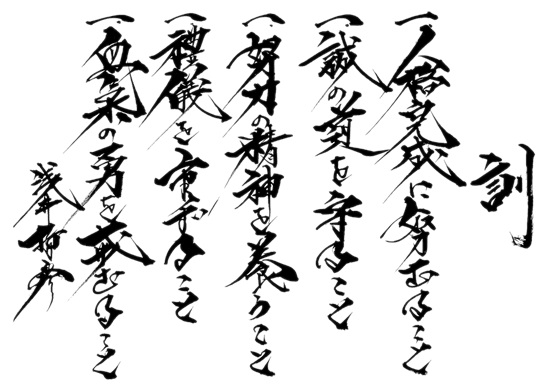 訓
一、人格完成に努むること
一、誠の道を守ること
一、努力の精神を養うこと
一、禮儀を重ずること
一、血氣の勇を戒むること
浅井哲彦